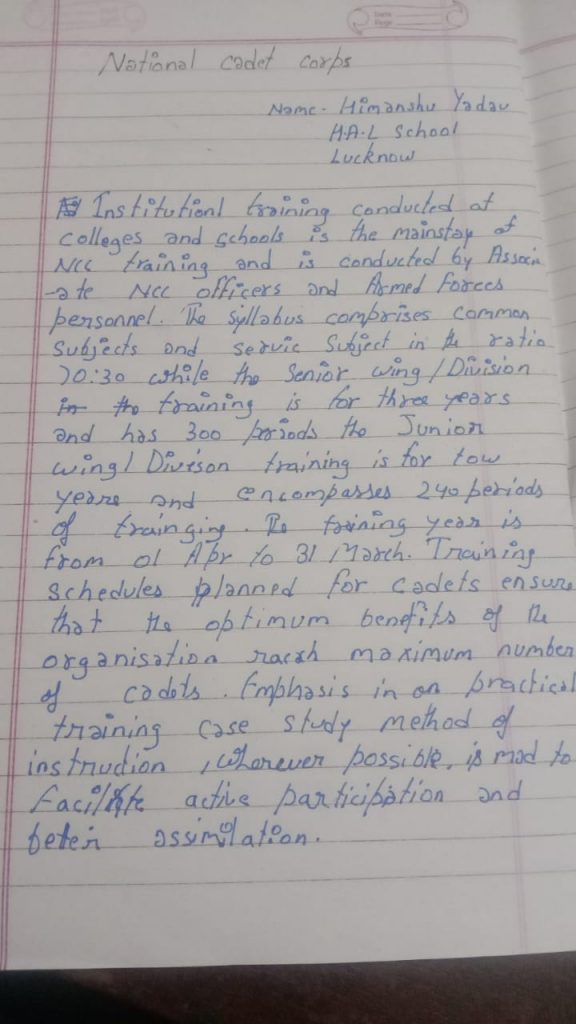 National cadet corps
Name- Himanshu Yadav
H.A.L School
Lucknow
Institutionl training conducted at
colleges and schools is the mainstay of
NCC training and is conducted by Associ
-ate NCC officers and Armed Forces
personnel. The syllabus comprises common
Subjects and servic Subject in the ratio
70:30 while the Senior wing/Division
in the training is for three years
and has 300 periods the Junior
wing/Divison training is for tow
years and encompasses 240 periods
of trainging. The training year is
from 01 Apr to 31 March. Training
schedules planned for cadets ensure
that the optimum benefits of the
organisation racsh maximum number
of cadets. Emphasis in on practical
training case study method of
instrudion, wherever possible, is mad to
facilitate active participation and
betein assimilation.